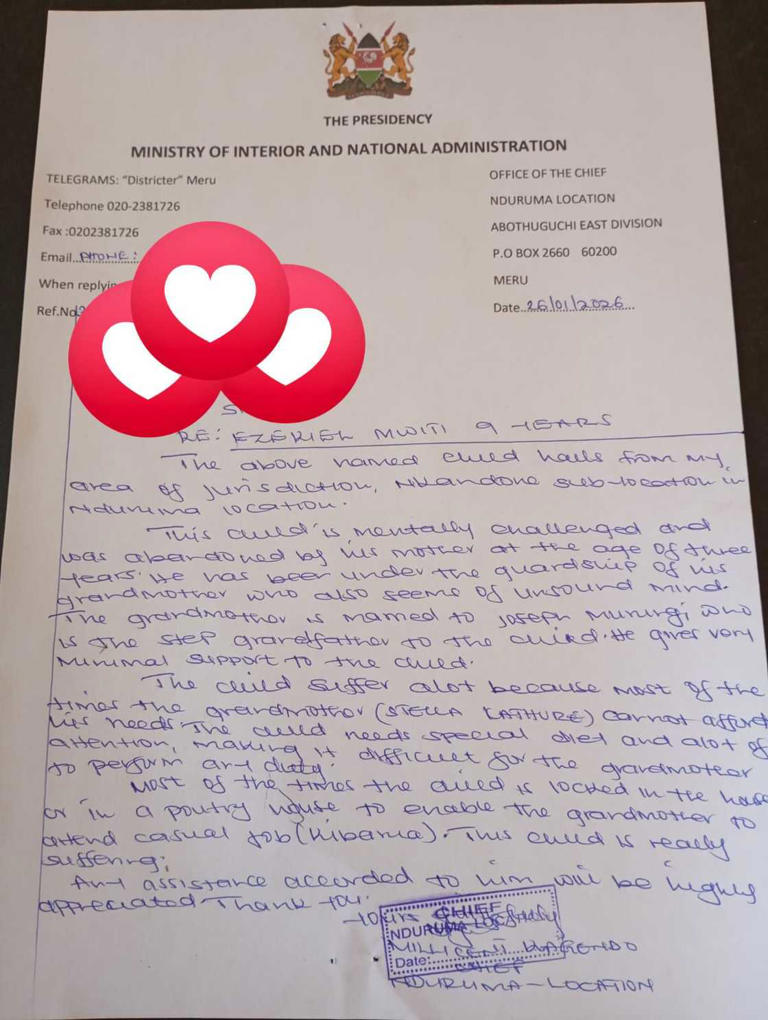 THE PRESIDENCY
MINISTRY OF INTERIOR AND NATIONAL ADMINISTRATION
TELEGRAMS: "Districter" Meru
Telephone 020-2381726
Fax :0202381726
Email..PHONE:
When replying
Ref.No
OFFICE OF THE CHIEF
NDURUMA LOCATION
ABOTHUGUCHI EAST DIVISION
P.O BOX 2660 60200
MERU
Date..26/01/2026...
RE: EZEKIEL MWITI 9 YEARS
The above named child hails from my
area of jurisdiction, Nkandone sub-location in
Nduruma location.
This child is mentally challenged and
was abandoned by his mother at the age of three
years. He has been under the guardship of his
grandmother who also seems of unsound mind.
The grandmother is married to Joseph Murungi who
is the step grandfather to the child. He gives very
minimal support to the child.
The child suffer alot because most of the
times the grandmother (STELLA KATHURE) cannot afford
his needs. The child needs special diet and alot of
attention, making it difficult for the grandmother
to perform any duty.
Most of the times the child is locked in the house
or in a poutry house to enable the grandmother to
attend casual job (Kibarua). This child is really
suffering;
Any assistance accorded to him will be highly
appreciated Thank you.
Yours
CHIEF
NDURUMA LOCATION
MILLICENT KARENDO
Date:
CHIEF
NDURUMA-LOCATION